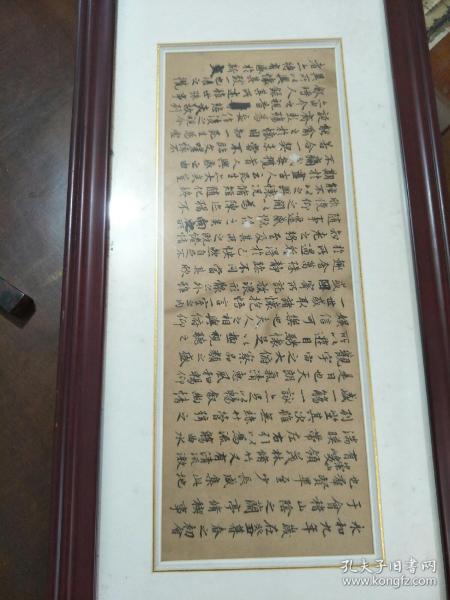 永和九年歲在癸丑暮春之初會
于會稽山陰之蘭亭脩稧事
也群賢畢至少長咸集此地
有崇山峻領茂林脩竹又有清流激
湍暎帶左右引以為流觴曲水
列坐其次雖無絲竹管弦之
盛一觴一詠亦足以暢敘幽情
是日也天朗氣清惠風和暢仰
觀宇宙之大俯察品類之盛
所以遊目騁懷足以極視聽之
娛信可樂也夫人之相與俯仰
一世或取諸懷抱悟言一室之內
或因寄所託放浪形骸之外雖
趣舍萬殊靜躁不同當其欣
於所遇暫得於己快然自足不
知老之將至及其所之既惓情
隨事遷感慨係之矣向之所
欣俛仰之間以為陳跡猶不
能不以之興懷況脩短隨化終
期於盡古人云死生亦大矣豈
不痛哉每攬昔人興感之由
若合一契未嘗不臨文嗟悼不
能喻之於懷固知一死生為虛
誕齊彭殤為妄作後之視今
亦由今之視昔悲夫故列
敘時人錄其所述雖世殊事
異所以興懷其致一也後之攬
者亦將有感於斯文
孔夫子旧书网
www.kongfz.com